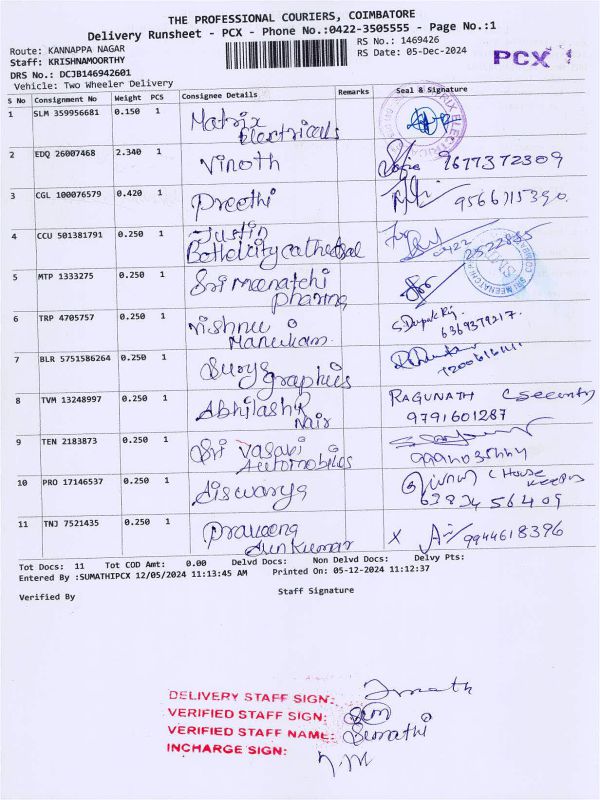 THE PROFESSIONAL COURIERS, COIMBATORE
Delivery Runsheet - PCX - Phone No.:0422-3505555 - Page No.:1
Route: KANNAPPA NAGAR
RS No.: 1469426
Staff: KRISHNAMOORTHY
RS Date: 05-Dec-2024
PCX 1
DRS No.: DCJB146942601
Vehicle: Two Wheeler Delivery
S No Consignment No Weight PCS Consignee Details Remarks Seal & Signature
1 SLM 359956681 0.150 1 Matrix
Electricals
2 EDQ 26007468 2.340 1 Vinoth 9677372309
3 CGL 100076579 0.420 1 Preethi 9566715390.
4 CCU 501381791 0.250 1 Justin
0422 2522885
5 MTP 1333275 0.250 1 Sri meenatchi
pharma
6 TRP 4705757 0.250 1 Vishnu
Manickam.
6369379217.
7 BLR 5751586264 0.250 1 Surya
graphics
8 TVM 13248997 0.250 1 Abhilash RAGUNATH (Security)
Nair 9791601287
9 TEN 2183873 0.250 1 Sri Vasavi
Automobiles
10 PRO 17146537 0.250 1 Aiswarya (House
keeping
63834 56409
11 TNJ 7521435 0.250 1 Praveena X 9944618396
Arunkumar
Tot Docs: 11 Tot COD Amt: 0.00 Delvd Docs: Non Delvd Docs: Delvy Pts:
Entered By :SUMATHIPCX 12/05/2024 11:13:45 AM Printed On: 05-12-2024 11:12:37
Verified By Staff Signature
DELIVERY STAFF SIGN:
VERIFIED STAFF SIGN:
VERIFIED STAFF NAME: Sumathi
INCHARGE SIGN: